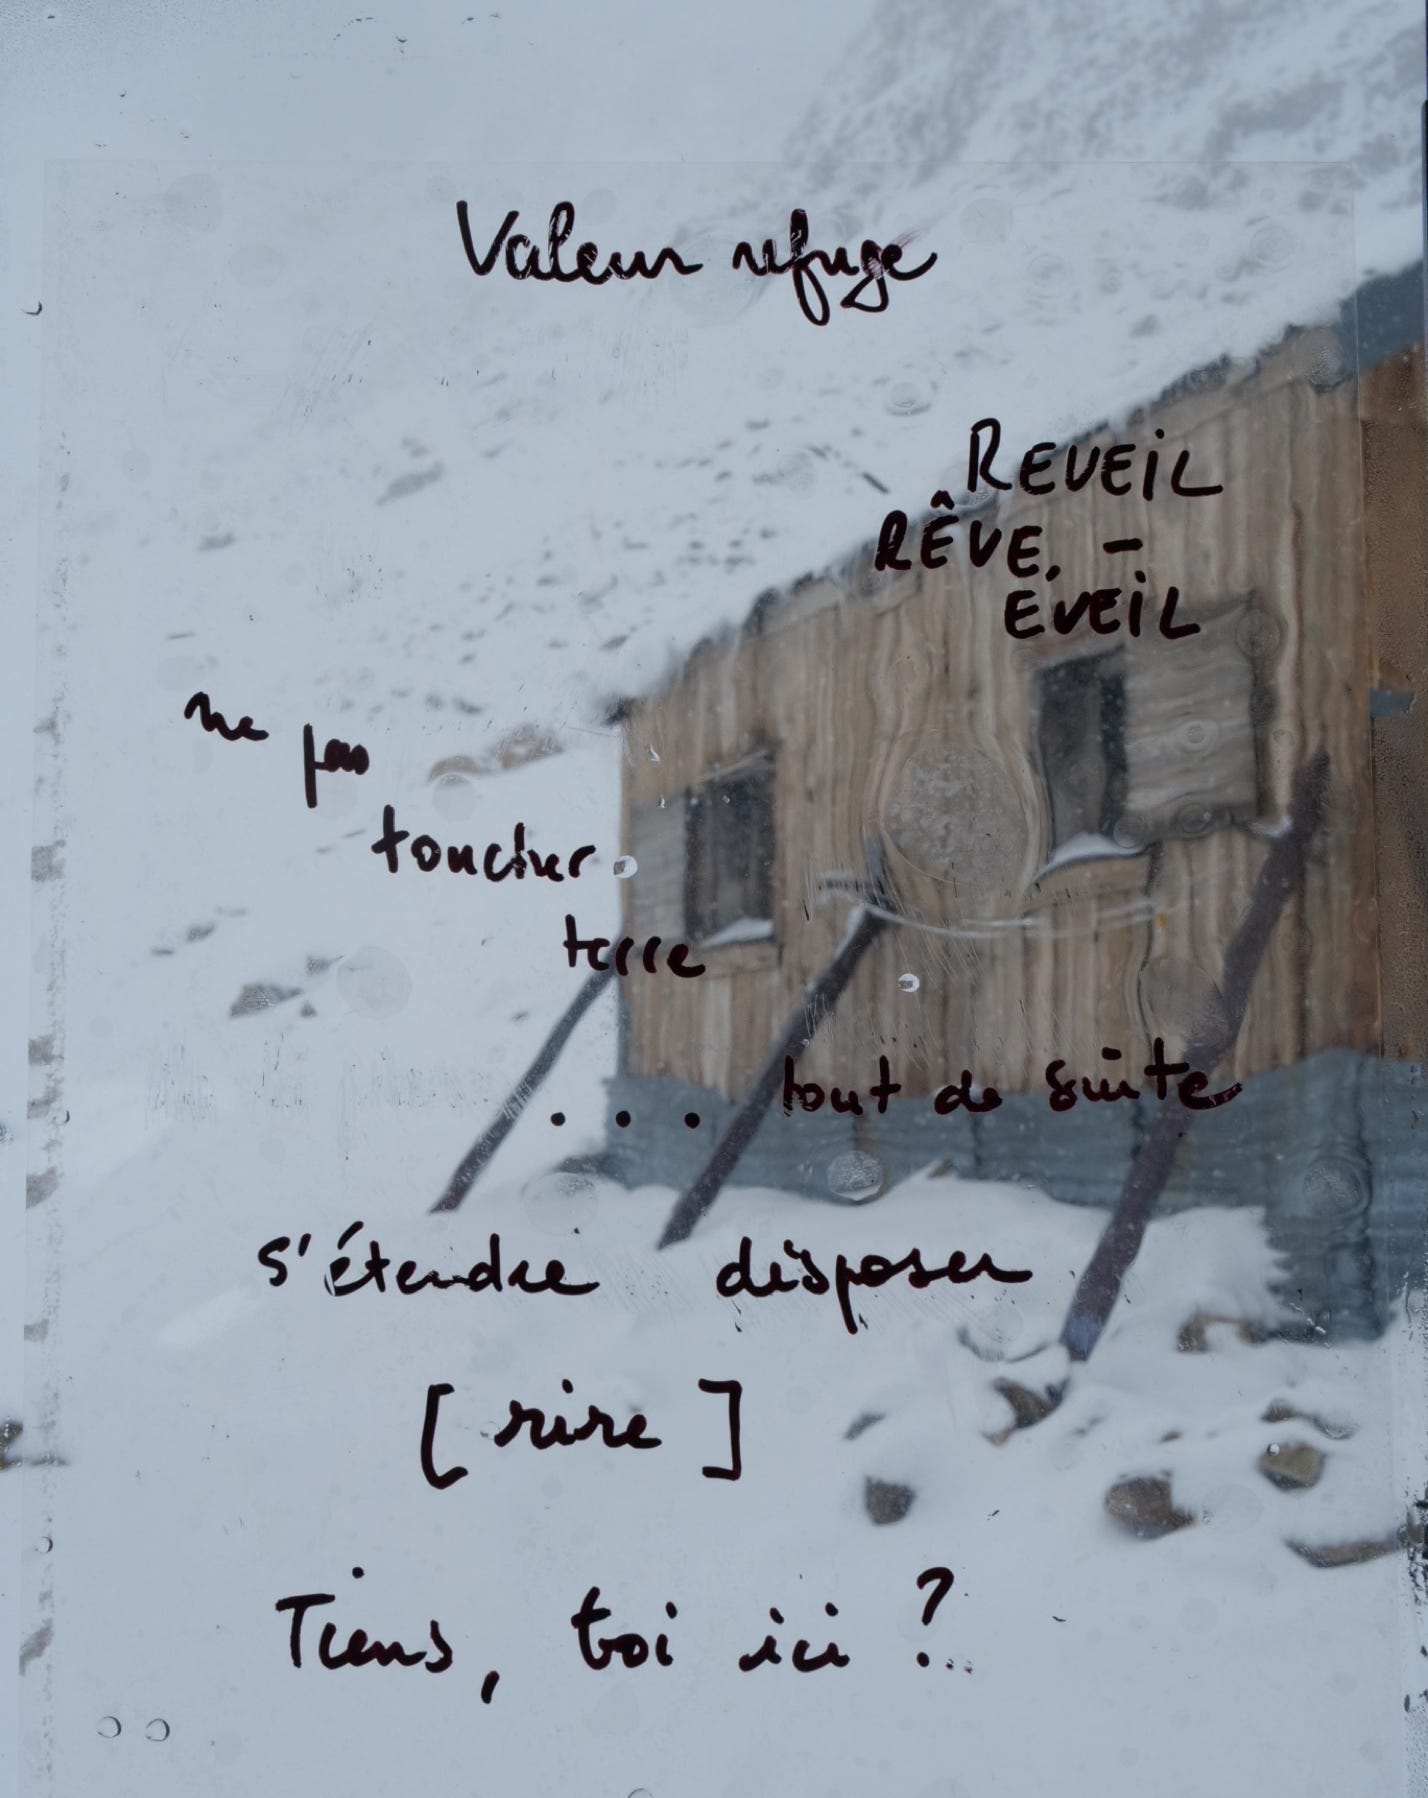 Valeur refuge
REVEIL
RÊVE. -
EVEIL
ne pas
toucher
terre
... tout de suite
s'étendre disposer
[ rire ]
Tiens, toi ici ?